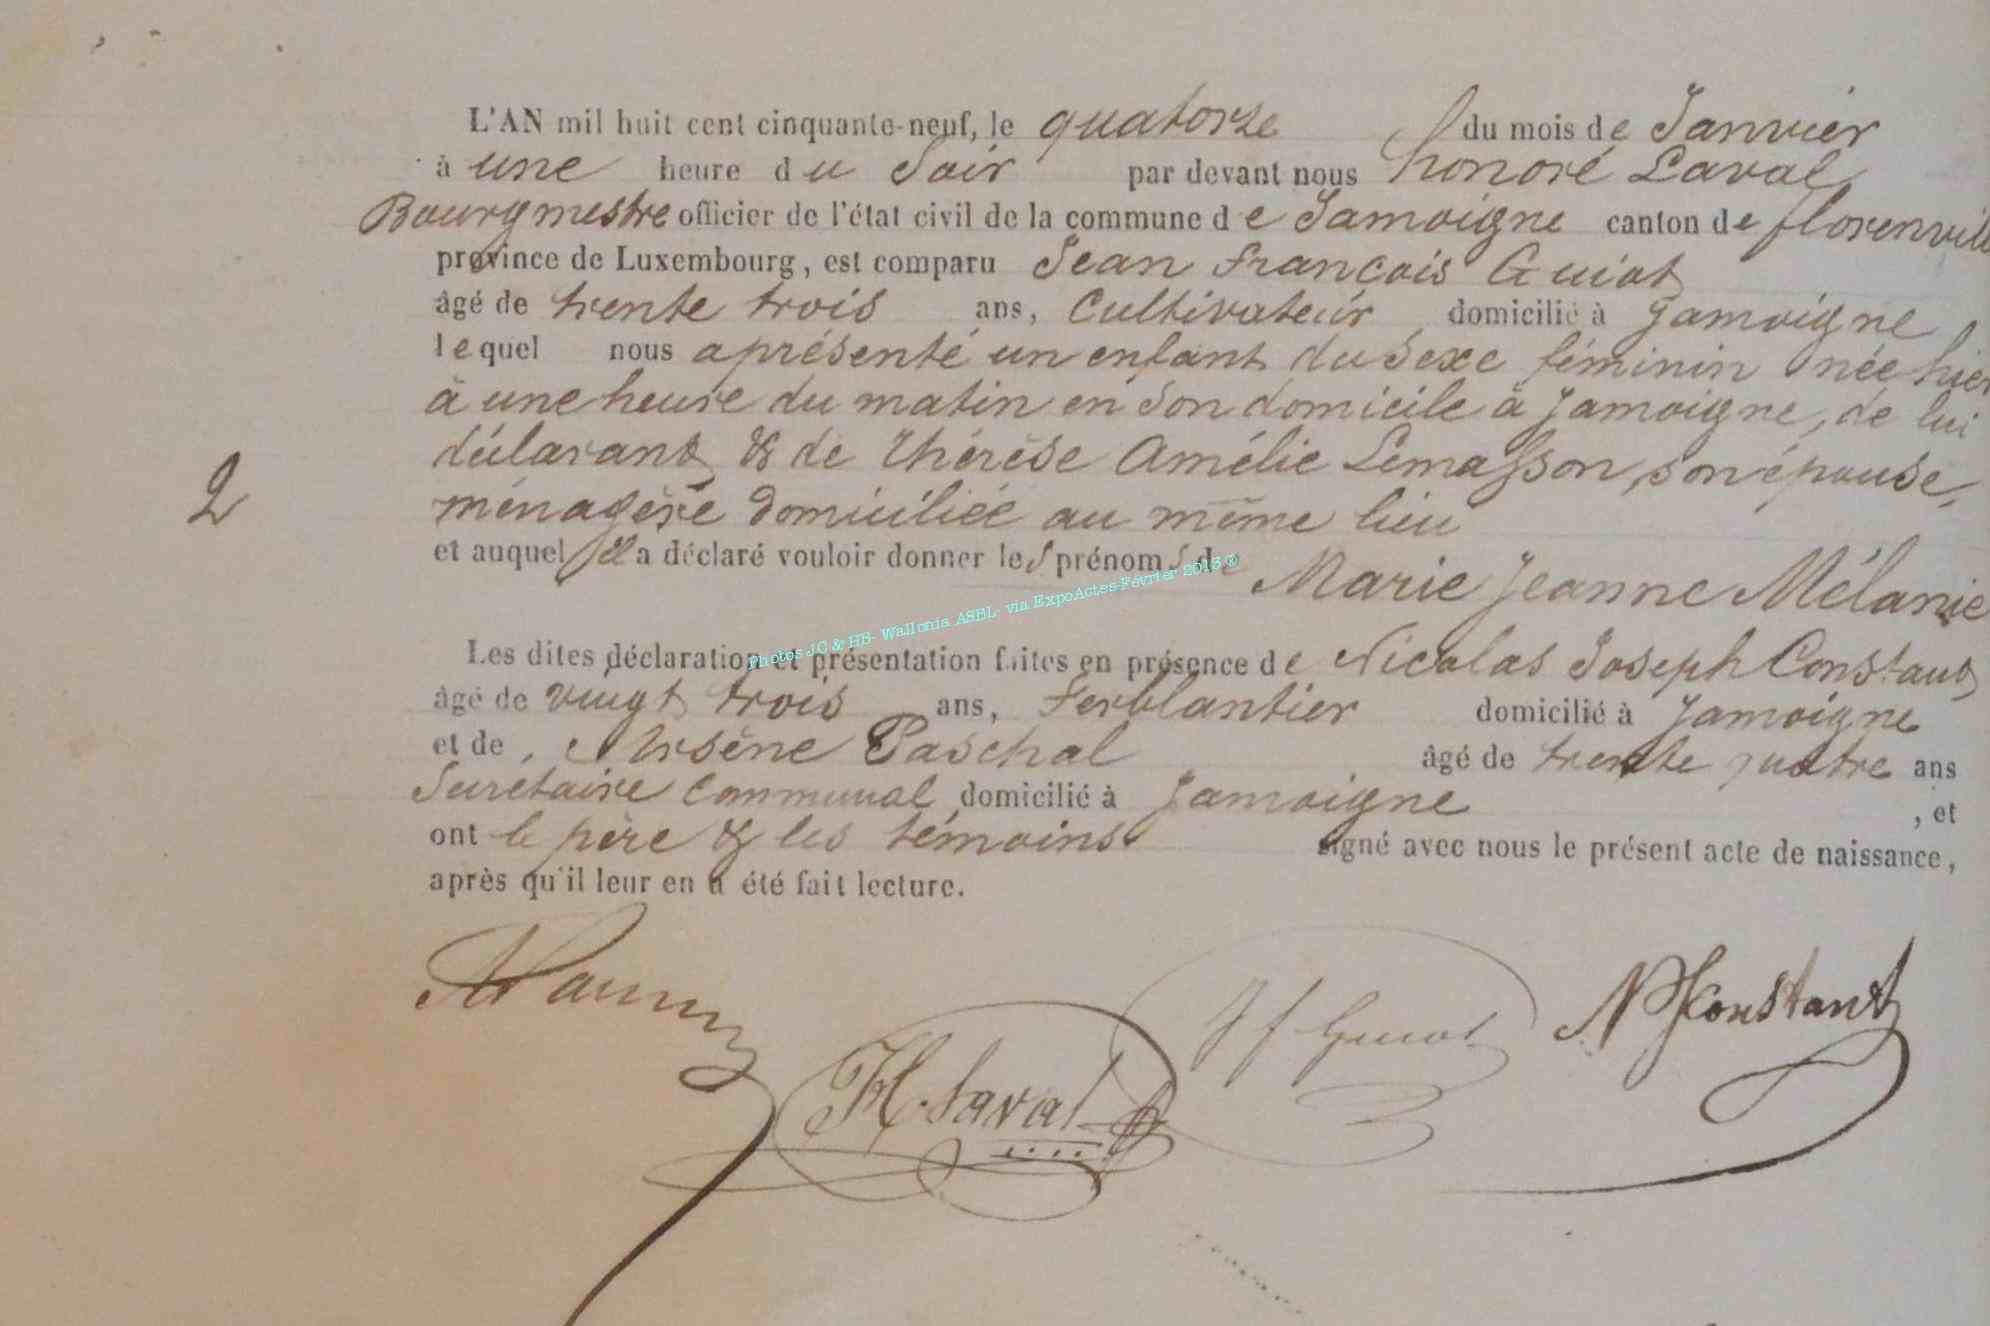 L'AN mil huit cent cinquante-neuf, le quatorze du mois de Janvier
à une heure du Soir par devant nous honoré Laval
Bourgmestre officier de l'état civil de la commune de Jamoigne canton de florenville
province de Luxembourg, est comparu Jean François Guiot
âgé de trente trois ans, Cultivateur domicilié à Jamoigne
lequel nous aprésenté un enfant du sexe féminin née hier
à une heure du matin en son domicile à Jamoigne, de lui
déclarant & de thérèse Amélie Lemasson, son épouse,
2
ménagère domiciliée au même lieu
et auquel il a déclaré vouloir donner les prénoms de Marie Jeanne Mélanie
Photos JC & HB- Wallonia ASBL- via ExpoActes-Février 2013 ®
Les dites déclaration et présentation faites en présence de Nicolas Joseph Constant
âgé de vingt trois ans, Ferblantier domicilié à Jamoigne
et de, Arsène Paschal âgé de trente quatre ans
Secrétaire Communal domicilié à Jamoigne , et
ont le père & les témoins signé avec nous le présent acte de naissance,
après qu'il leur en a été fait lecture.
H. Laval
J f Guiot
NJ Constant